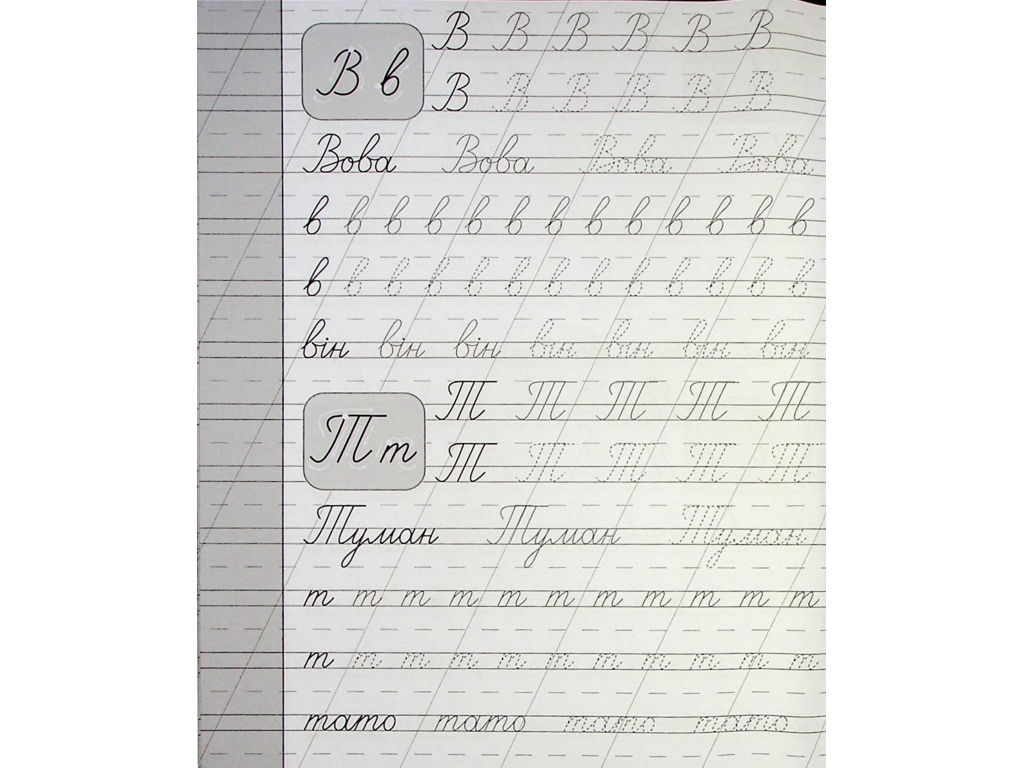 В в
В В В В В В
В В В В В В
Вова Вова Вова Вова
в в в в в в в в в в в в в
в в в в в в в в в в в в в
він він він він він він він
Т т
Т Т Т Т Т
Т Т Т Т Т
Туман Туман Туман
т т т т т т т т т т т
т т т т т т т т т т т
тато тато тато тато